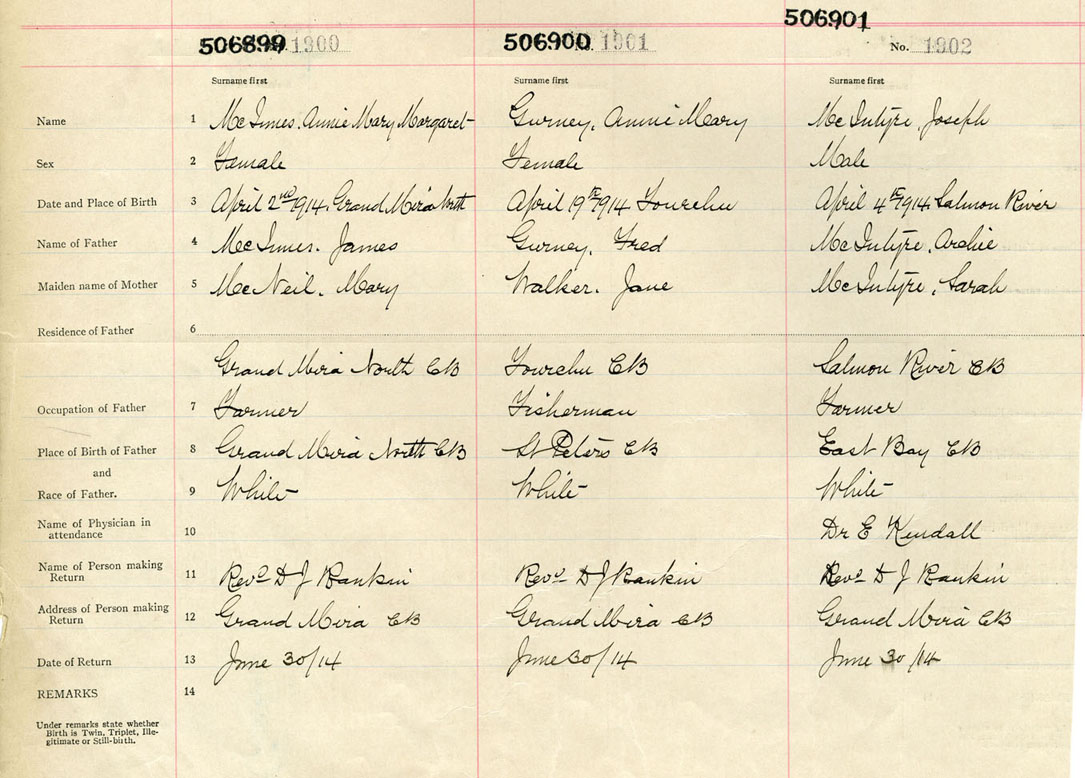 506901
506899 1900 506900 1901 No. 1902
Surname first Surname first Surname first
Name 1 McInnes. Annie Mary Margaret Gurney. Annie Mary McIntyre, Joseph
Sex 2 Female Female Male
Date and Place of Birth 3 April 2nd 1914. Grand Mira North April 19th 1914 Fourchu April 4th 1914. Salmon River
Name of Father 4 McInnes. James Gurney. Fred McIntyre, Archie
Maiden name of Mother 5 McNeil. Mary Walker. Jane McIntyre, Sarah
Residence of Father 6
Grand Mira North CB Fourchu CB Salmon River CB
Occupation of Father 7 Farmer Fisherman Farmer
Place of Birth of Father 8 Grand Mira North CB St Peters CB East Bay CB
and
Race of Father. 9 White White White
Name of Physician in
attendance 10 Dr E Kendall
Name of Person making
Return 11 Revd D J Rankin Revd D J Rankin Revd D J Rankin
Address of Person making
Return 12 Grand Mira CB Grand Mira CB Grand Mira CB
Date of Return 13 June 30/14 June 30/14 June 30/14
REMARKS 14
Under remarks state whether
Birth is Twin, Triplet, Ille-
gitimate or Still-birth.